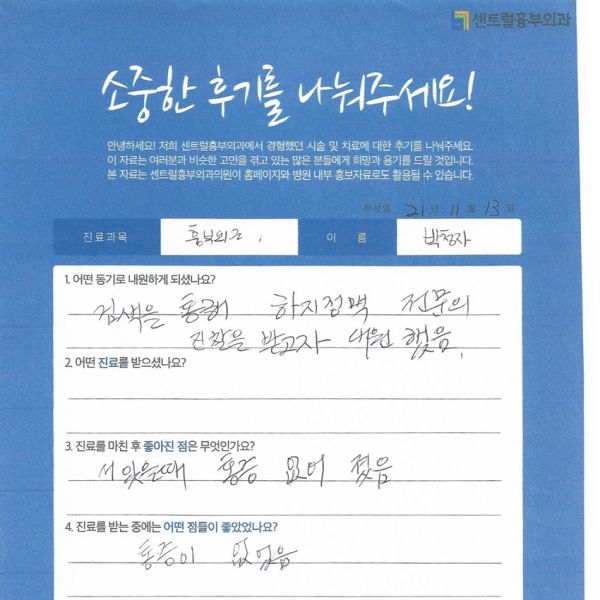 센트럴흉부외과
소중한 후기를 나눠주세요!
안녕하세요! 저희 센트럴흉부외과에서 경험했던 시술 및 치료에 대한 후기를 나눠주세요.
이 자료는 여러분과 비슷한 고민을 겪고 있는 많은 분들에게 희망과 용기를 드릴 것입니다.
본 자료는 센트럴흉부외과의원이 홈페이지와 병원 내부 홍보자료로도 활용될 수 있습니다.
작성일 21 년 11 월 13 일
진료과목 흉부외과 이 름 박청자
1. 어떤 동기로 내원하게 되셨나요?
검색을 통해 하지정맥 전문의
진찰을 받고자 내원 했음.
2. 어떤 진료를 받으셨나요?
3. 진료를 마친 후 좋아진 점은 무엇인가요?
서 있을때 통증 없어 졌음
4. 진료를 받는 중에는 어떤 점들이 좋았었나요?
통증이 없었음